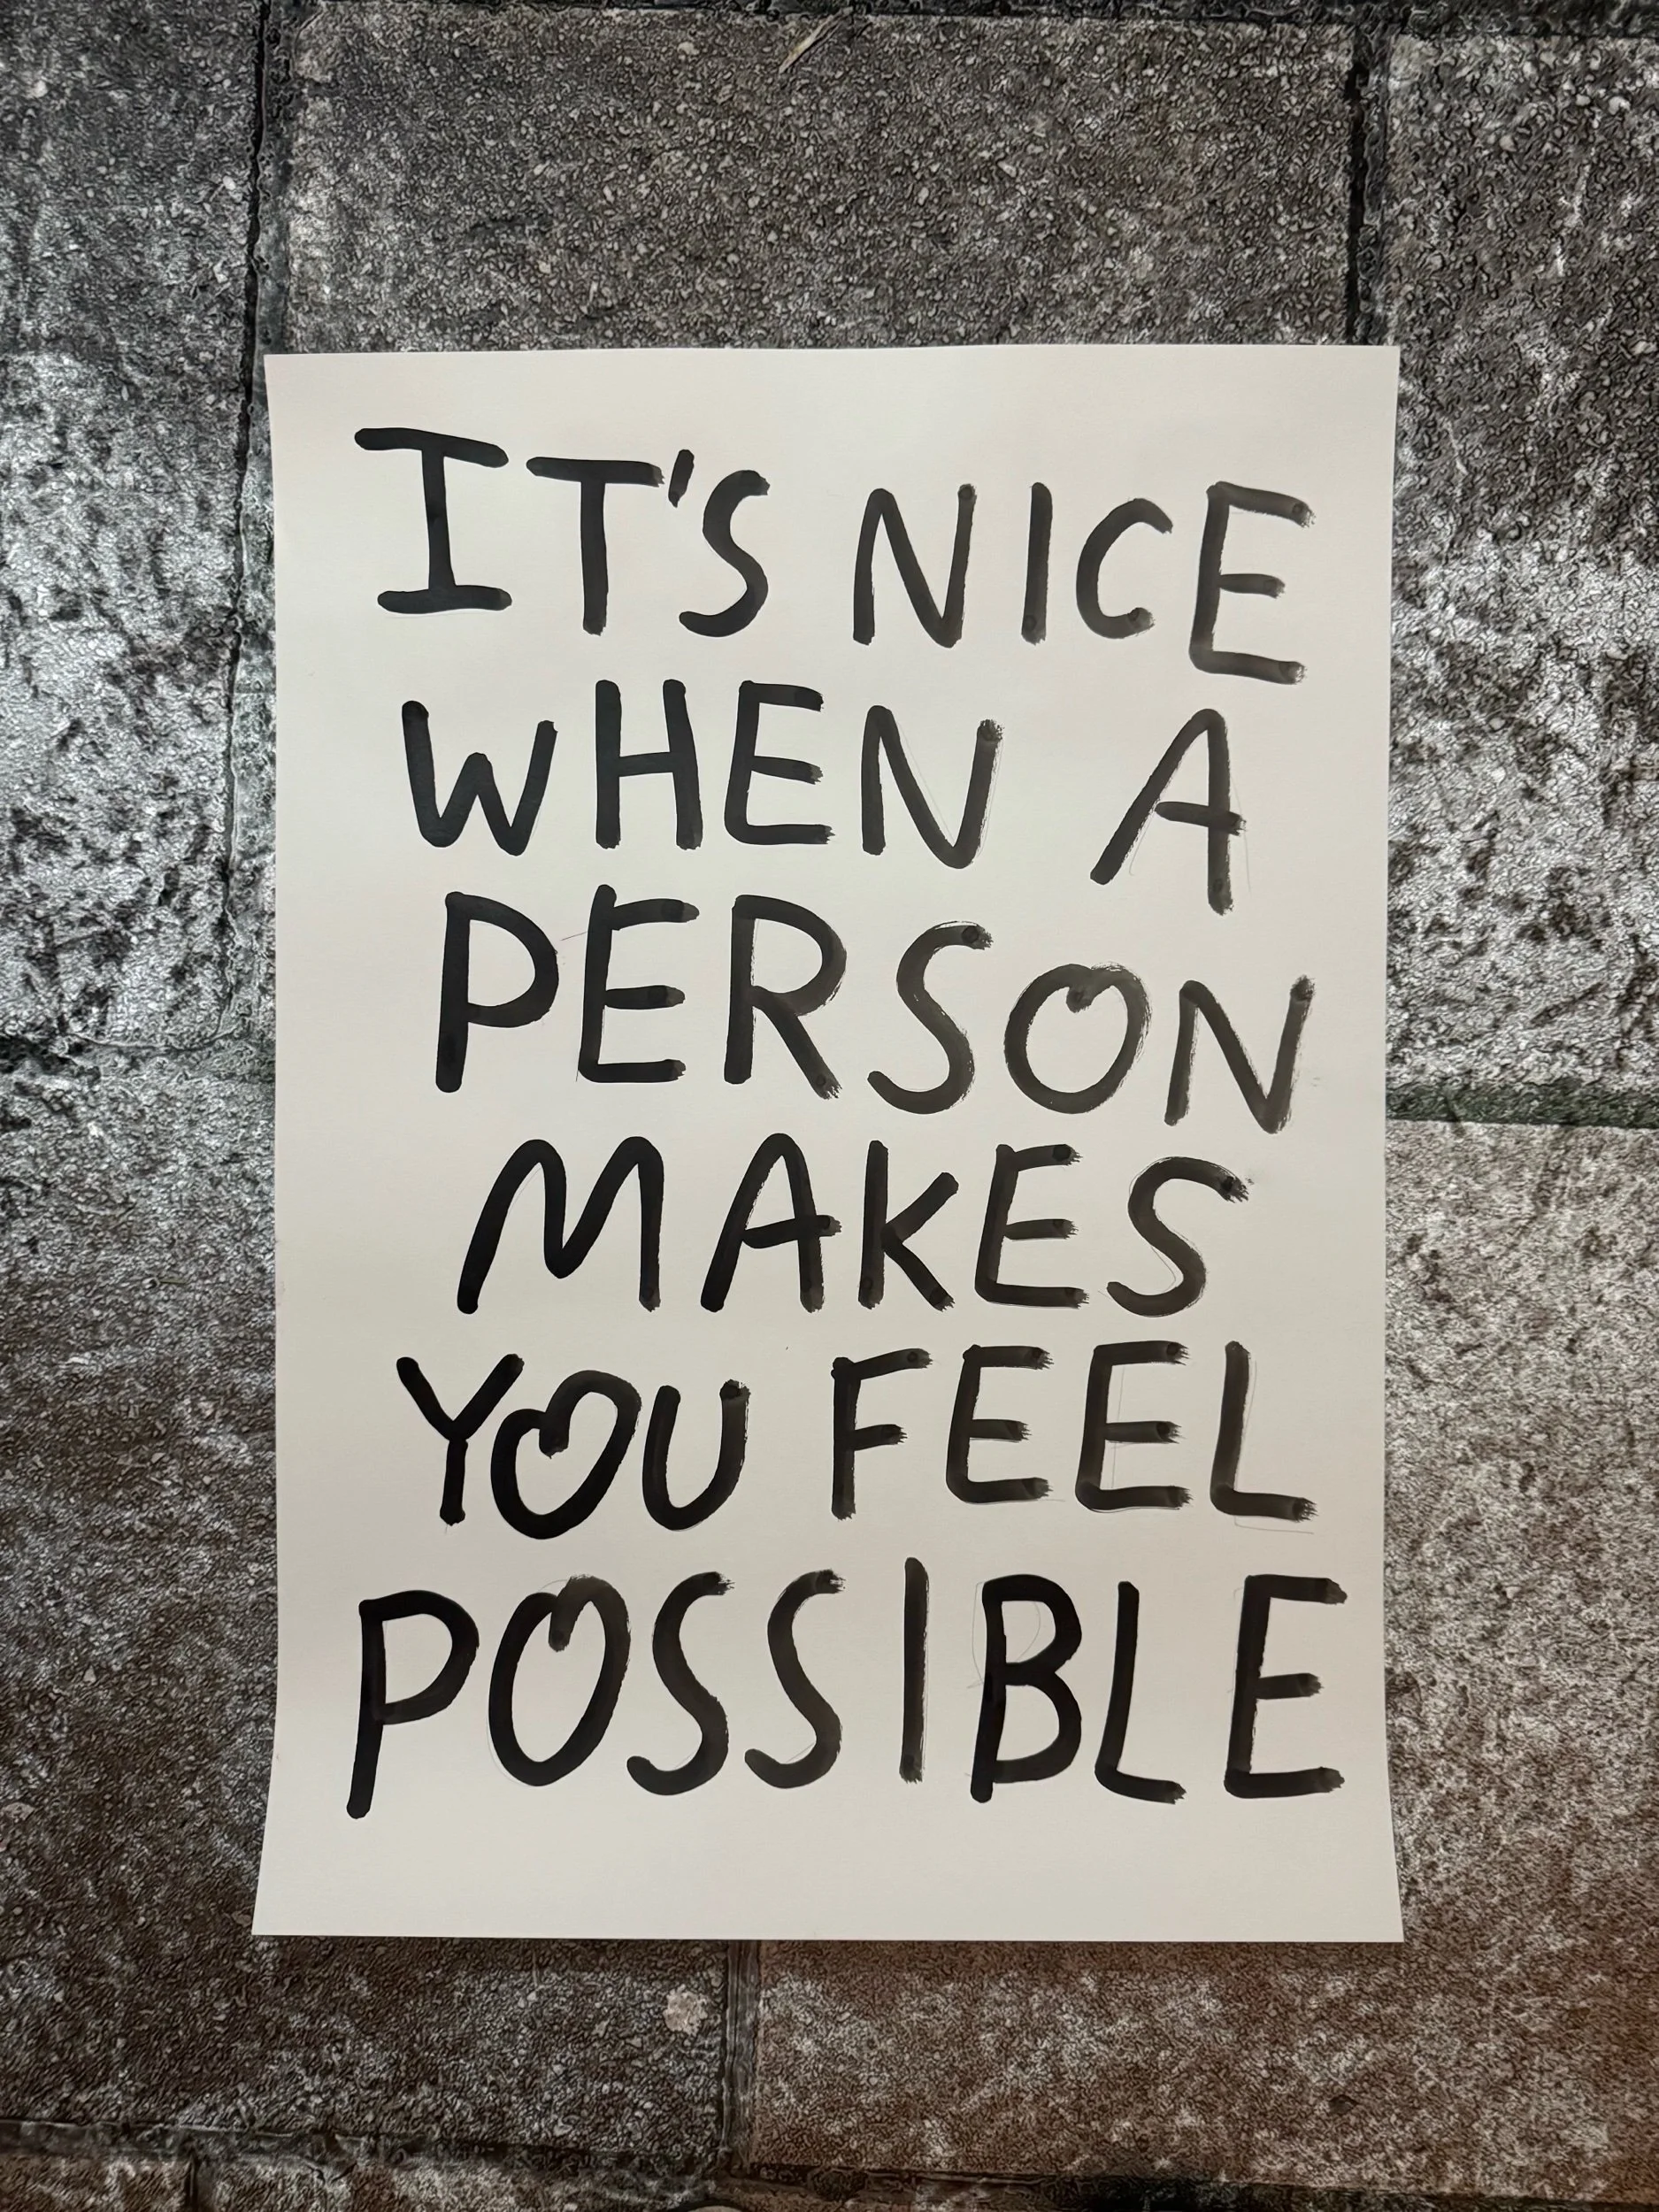 IT'S NICE
WHEN A
PERSON
MAKES
YOU FEEL
POSSIBLE